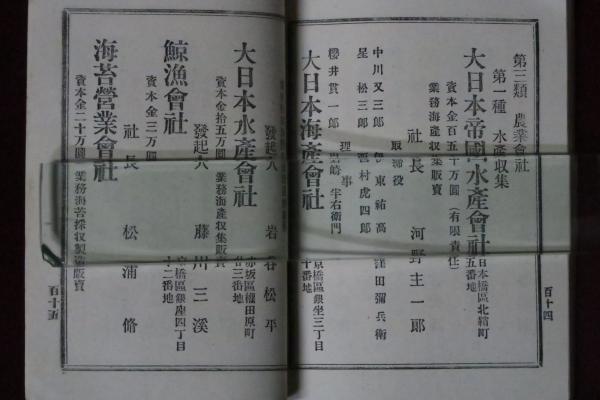 第三類 農業會社
第一種 水產収集
大日本帝國水產會社
日本橋區北鞘町
五番地
資本金百五十万圓(有限責任)
業務海產収集販賣
社長 河野主一郎
取締役
中川又三郎 東祐高 窪田彌兵衛
星松三郎 西村虎四郎
理事
櫻井貫一郎 半右衛門
百十四
大日本海產會社
京橋區銀坐三丁目
十番地
大日本水產會社
赤坂區
資本金拾五万圓 業務海產収集販賣
發起人 岩谷松平
鯨漁會社
京橋區銀座四丁目
十二番地
資本金三万圓
發起人 藤川三溪
海苔營業會社
資本金二十万圓 業務海苔採収製造販賣
社長 松浦脩
百十五